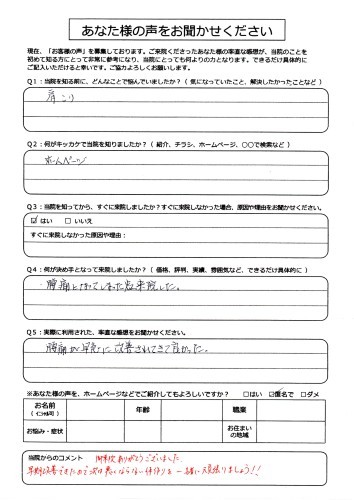 あなた様の声をお聞かせください
現在、「お客様の声」を募集しております。ご来院くださったあなた様の率直な感想が、当院のことを
初めて知る方にとって非常に参考になり、当院にとっても何よりの力となります。できるだけ具体的に
ご記入いただけると幸いです。ご協力よろしくお願いします。
Q1：当院を知る前に、どんなことで悩んでいましたか？（ 気になっていたこと、解決したかったことなど ）
肩こり
Q2：何がキッカケで当院を知りましたか？（ 紹介、チラシ、ホームページ、〇〇で検索など ）
ホームページ
Q3：当院を知ってから、すぐに来院しましたか？すぐに来院しなかった場合、原因や理由をお聞かせください。
☑はい □いいえ
すぐに来院しなかった原因や理由：
Q4：何が決め手となって来院しましたか？（ 価格、評判、実績、雰囲気など、できるだけ具体的に ）
腰痛となってしまった為来院した。
Q5：実際に利用された、率直な感想をお聞かせください。
腰痛が早急に改善されてきて良かった。
※あなた様の声を、ホームページなどでご紹介してもよろしいですか？ □はい ☑匿名で □ダメ
お名前
（イニシャル可）
年齢
職業
お悩み・症状
お住まい
の地域
当院からのコメント
ありがとうございました
早期改善できたので次は悪くならない体作りを一緒に頑張りましょう！！